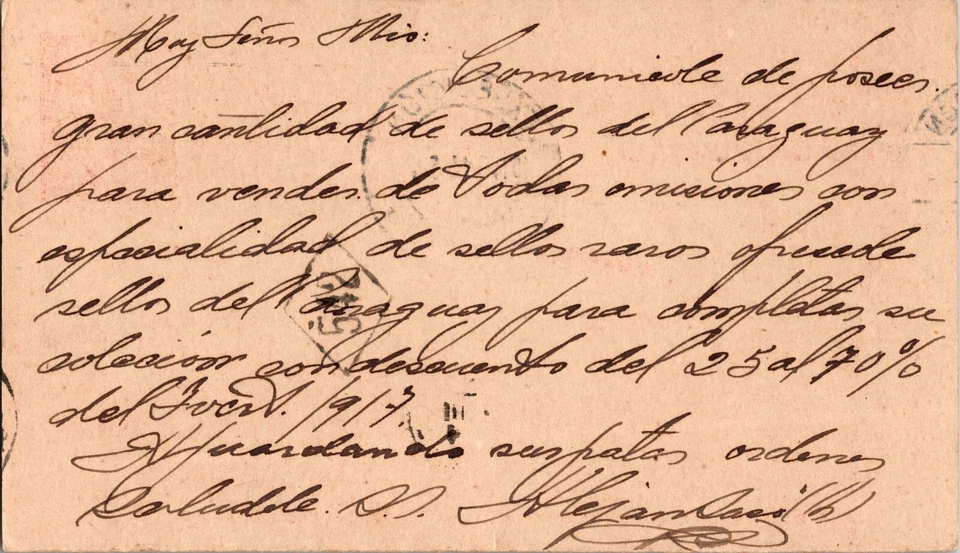 Muy Señor Mio:
Comunicole de poseer
gran cantidad de sellos del Paraguay
para vender de todas emisiones con
especialidad de sellos raros
sellos del Paraguay para completar su
colección con descuento del 25 al 70%
del 1917
Aguardando sus ordenes
Saludole S. S.
542